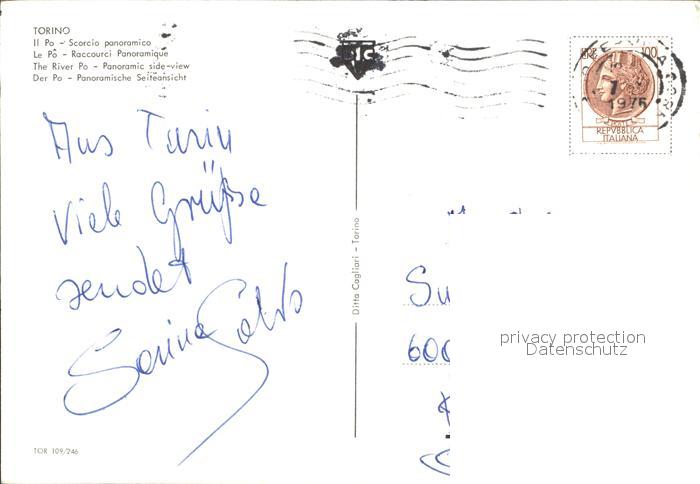 TORINO
Il Po - Scorcio panoramico
Le Pô - Raccourci Panoramique
The River Po - Panoramic side-view
Der Po - Panoramische Seitenansicht
LIRE 100
1975
POSTE
REPVBBLICA
ITALIANA
Aus Turin
Viele Grüße
sendet
Ditta Cagliari - Torino
Su
600
privacy protection
Datenschutz
TOR 109/246